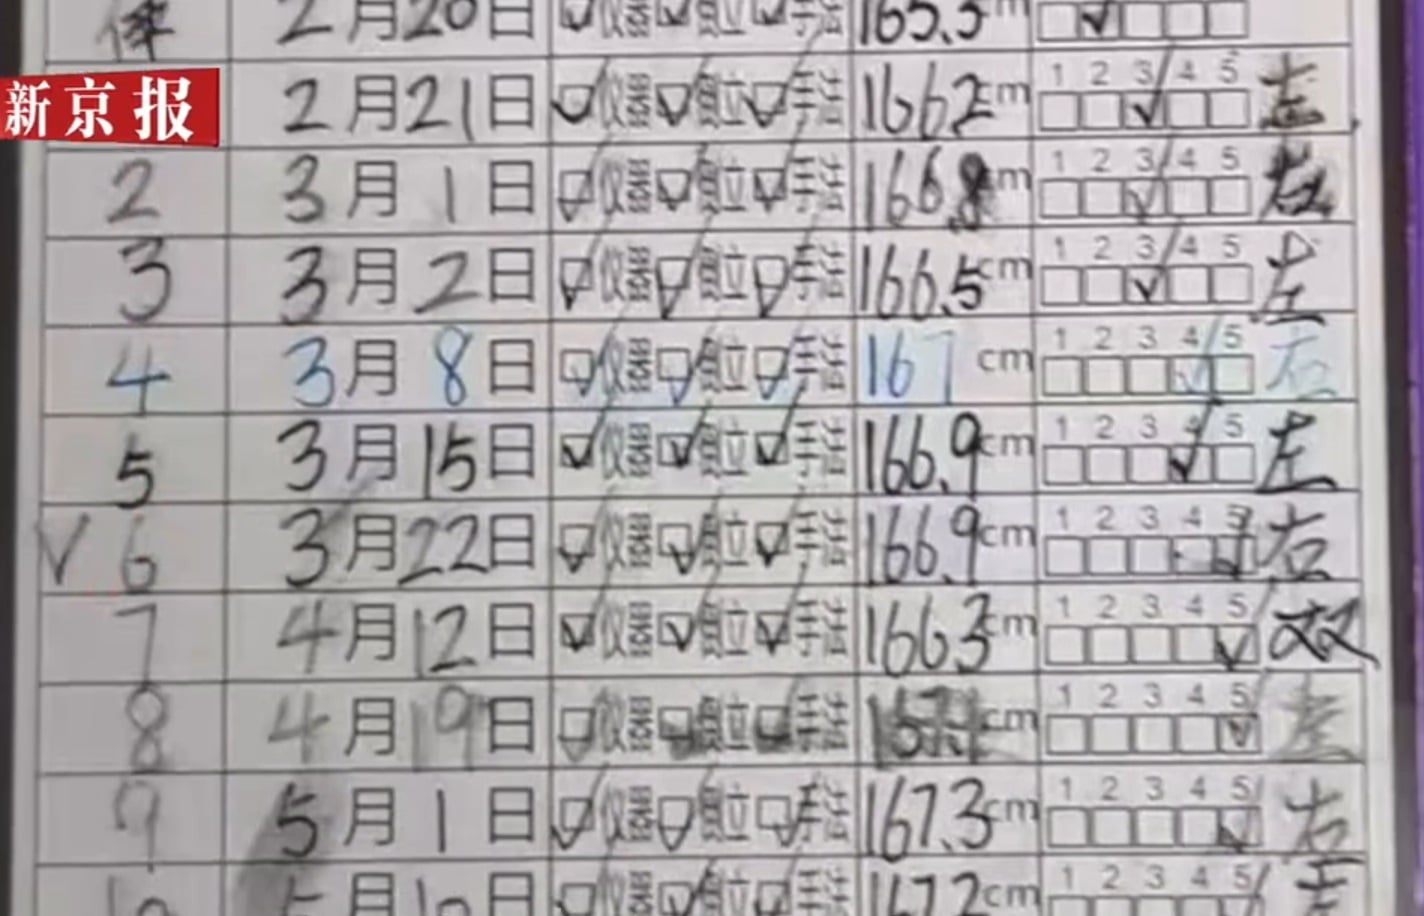 体 2月20日 仪器 直立 手法 165.5cm
新京报
1 2 3 4 5
2月21日 仪器 直立 手法 166.2cm 左
1 2 3 4 5
2 3月1日 仪器 直立 手法 166.8cm 右
1 2 3 4 5
3 3月2日 仪器 直立 手法 166.5cm 左
1 2 3 4 5
4 3月8日 仪器 直立 手法 167cm 右
1 2 3 4 5
5 3月15日 仪器 直立 手法 166.9cm 左
1 2 3 4 5
6 3月22日 仪器 直立 手法 166.9cm 右
1 2 3 4 5
7 4月12日 仪器 直立 手法 166.3cm 双
1 2 3 4 5
8 4月19日 仪器 直立 手法 cm 左
1 2 3 4 5
9 5月1日 仪器 直立 手法 167.3cm 右
1 2 3 4 5
10 5月10日 167.2cm